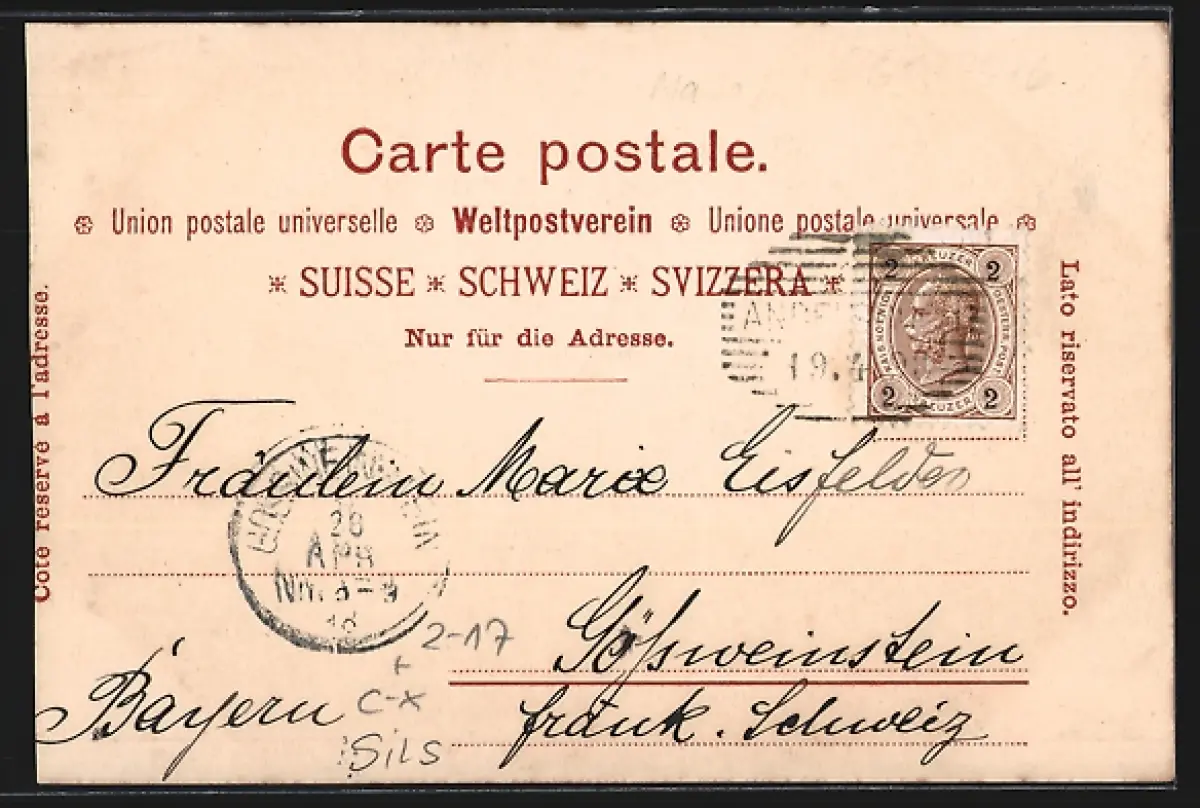 Carte postale.
Union postale universelle Weltpostverein Unione postale universale
SUISSE SCHWEIZ SVIZZERA
Nur für die Adresse.
Côté réservé à l'adresse.
Lato riservato all' indirizzo.
2 KREUZER 2
KAIS. KÖNIGL. OESTERR. POST
2 KREUZER 2
19.4
Fräulein Marie Eisfelder
GOESSWEINSTEIN
26
APR
Nm. 8-9
Gößweinstein
Bayern
fränk. Schweiz
2-17
+
C-X
Sils